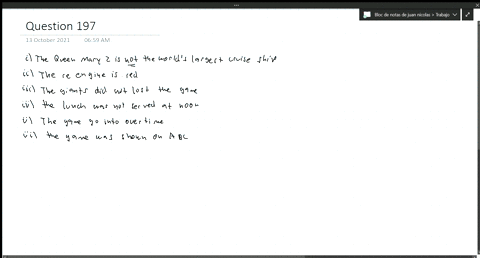 Bloc de notas de juan nicolas » Trabajo
Question 197
13 October 2021 06:59 AM
i) The Queen Mary 2 is not the world's largest cruise ship
ii) The re engine is red
iii) The giants did not lost the game
iv) the lunch was not served at noon
v) The game go into overtime
vi) the game was shown on ABC